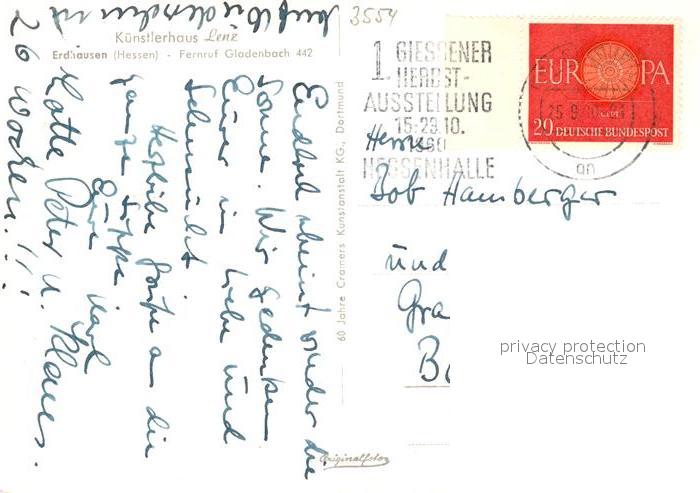 3554
Künstlerhaus Lenz
Erdhausen (Hessen) - Fernruf Gladenbach 442
1. GIESSENER
HERBST-
AUSSTELLUNG
15.-23.10.
1960
HESSENHALLE
EUROPA
CEPT
20 DEUTSCHE BUNDESPOST
Herrn
Bob Hamberger
und
Gra
B
privacy protection
Datenschutz
60 Jahre Cramers Kunstanstalt KG., Dortmund
Originalfoto
Endlich scheint wieder die
Sonne. Wir gedenken
Eurer in Liebe und
Sehnsucht
Herzliche Grüße an die
ganze Sippe
Eure
Lotte Peter u. Klaus.
26 Wochen!!!
Auf Wiedersehen in